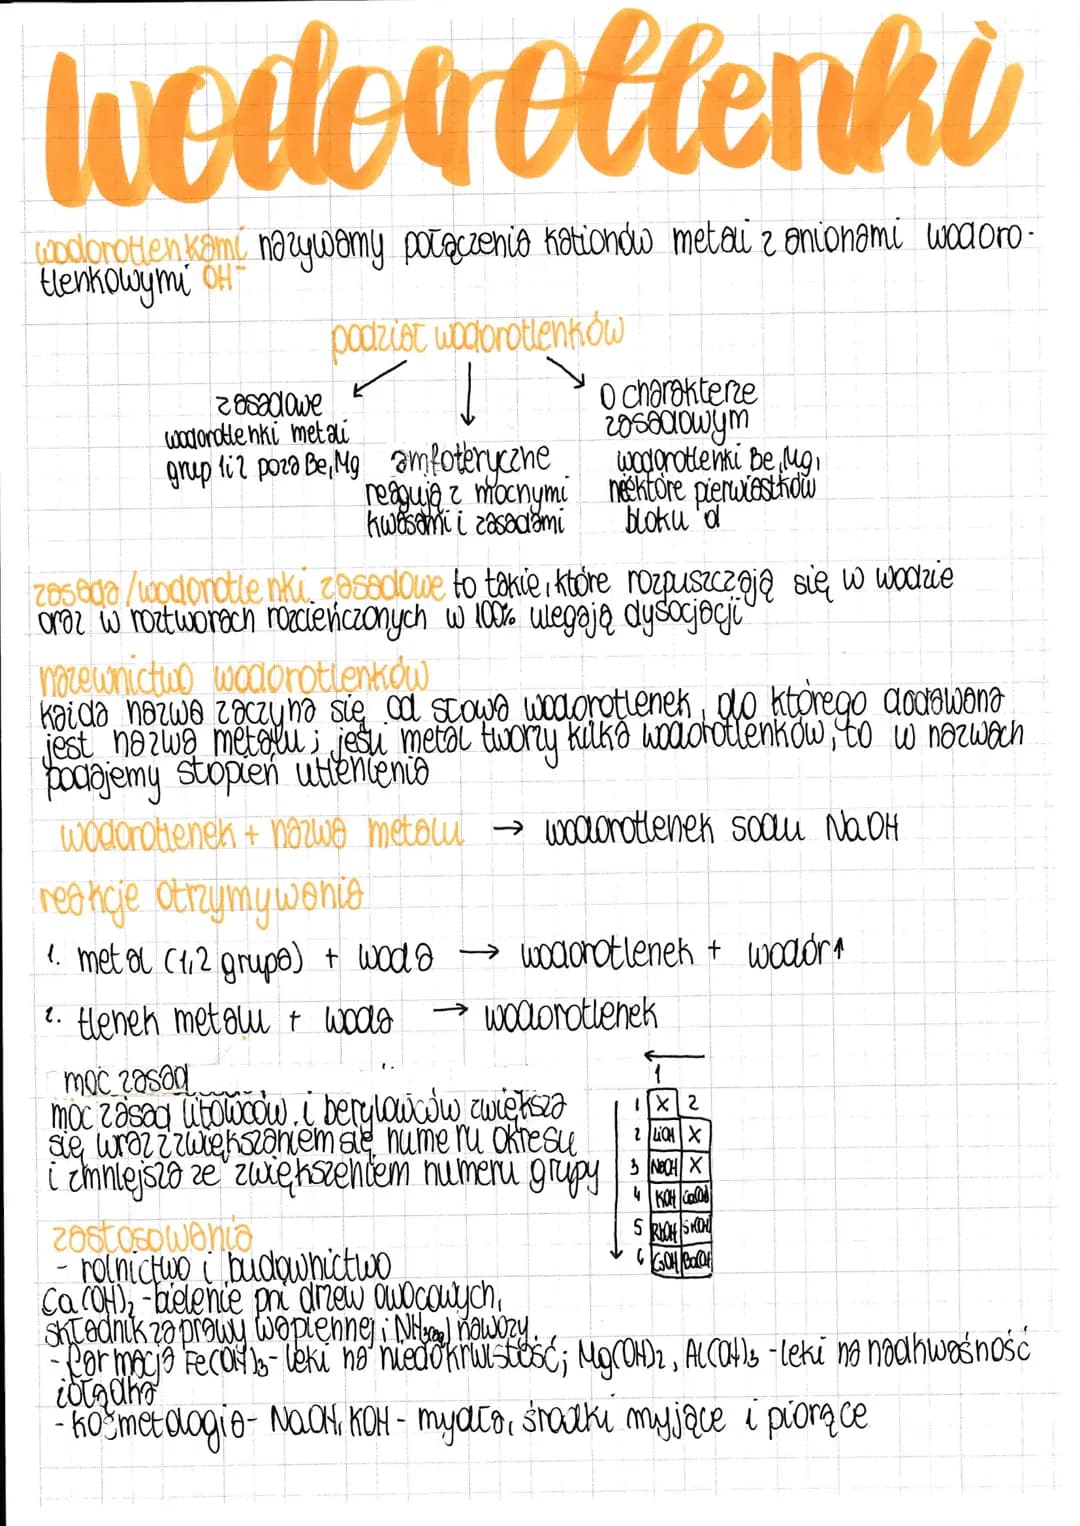 wodorotlenki
wodorotlenkami nazywamy połączenia kationów metali z anionami wodoro-
tlenkowymi OH⁻
podział wodorotlenków
zasadowe
wodorotlenki metali
grup 1 i 2 poza Be, Mg
amfoteryczne
reagują z mocnymi
kwasami i zasadami
o charakterze
zasadowym
wodorotlenki Be, Mg,
niektóre pierwiastków
bloku d
zasada/wodorotlenki zasadowe to takie, które rozpuszczają się w wodzie
oraz w roztworach rozcieńczonych w 100% ulegają dysocjacji
nazewnictwo wodorotlenków
każda nazwa zaczyna się od słowa wodorotlenek, do którego dodawana
jest nazwa metalu; jeśli metal tworzy kilka wodorotlenków, to w nazwach
podajemy stopień utlenienia
wodorotlenek + nazwa metalu → wodorotlenek sodu NaOH
reakcje otrzymywania
1. metal (1,2 grupa) + woda → wodorotlenek + wodór↑
2. tlenek metalu + woda → wodorotlenek
moc zasad
moc zasad litowców i berylowców zwiększa
się wraz z zwiększaniem się numeru okresu
i zmniejsza ze zwiększeniem numeru grupy
←
1
1 X 2
2 LiOH X
3 NaOH X
4 KOH
5 RbOH
6 CsOH
zastosowania
- rolnictwo i budownictwo
Ca(OH)₂ - bielenie pni drzew owocowych,
składnik zaprawy wapiennej; nawozy.
- farmacja Fe(OH)₃ - leki na niedokrwistość; Mg(OH)₂, Al(OH)₃ - leki na nadkwaśność
żołądka
- kosmetologia - NaOH, KOH - mydła, środki myjące i piorące